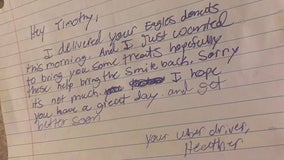 Hey Timothy,
I delivered your Englos donuts
this morning. And I Just wanted
to bring you some treats hopefully
these help bring the Smile back. Sorry
its not much. I hope
you have a great day. and get
better soon
your uber driver,
Heather